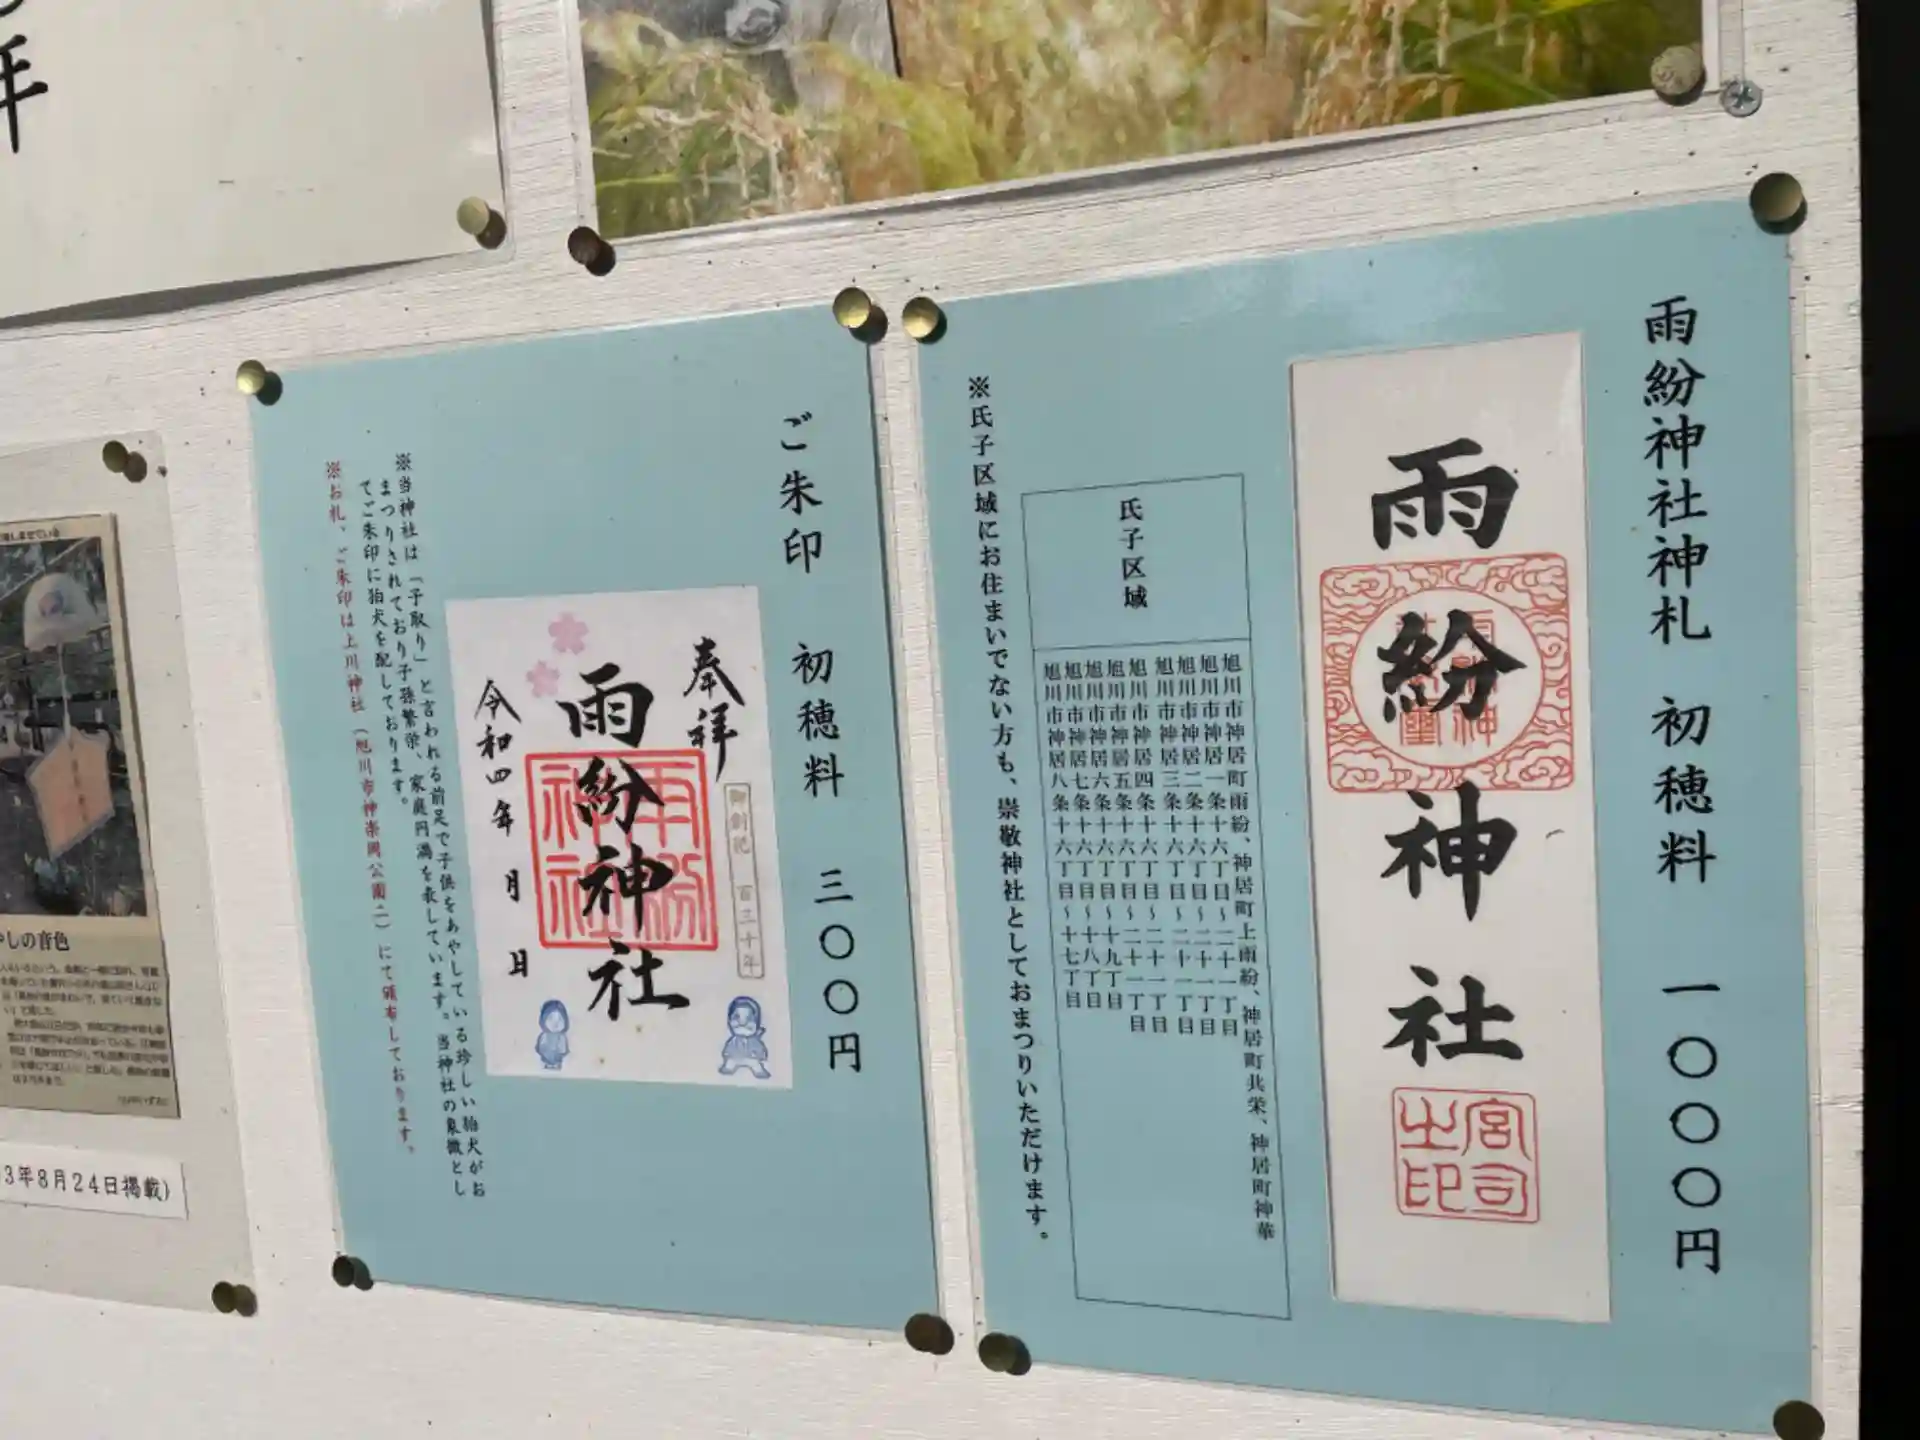 年
雨紛神社神札　初穂料　一〇〇〇円
雨紛神社
宮司之印
氏子区域
旭川市神居町雨紛、神居町上雨紛、神居町共栄、神居町神華
旭川市神居一条十六丁目～二十一丁目
旭川市神居二条十六丁目～二十一丁目
旭川市神居三条十六丁目～二十一丁目
旭川市神居四条十六丁目～二十一丁目
旭川市神居五条十六丁目～二十一丁目
旭川市神居六条十六丁目～十九丁目
旭川市神居七条十六丁目～十八丁目
旭川市神居八条十六丁目～十七丁目
※氏子区域にお住まいでない方も、崇敬神社としておまつりいただけます。
ご朱印　初穂料　三〇〇円
奉拝
御創祀　百三十年
雨紛神社
雨紛神社
令和四年　月　日
※当神社は「子取り」と言われる前足で子供をあやしている珍しい狛犬がお
まつりされており子孫繁栄、家庭円満を表しています。当神社の象徴とし
てご朱印に狛犬を配しております。
※お札、ご朱印は上川神社（旭川市神楽岡公園二）にて頒布しております。
やしの音色
3年8月24日掲載）